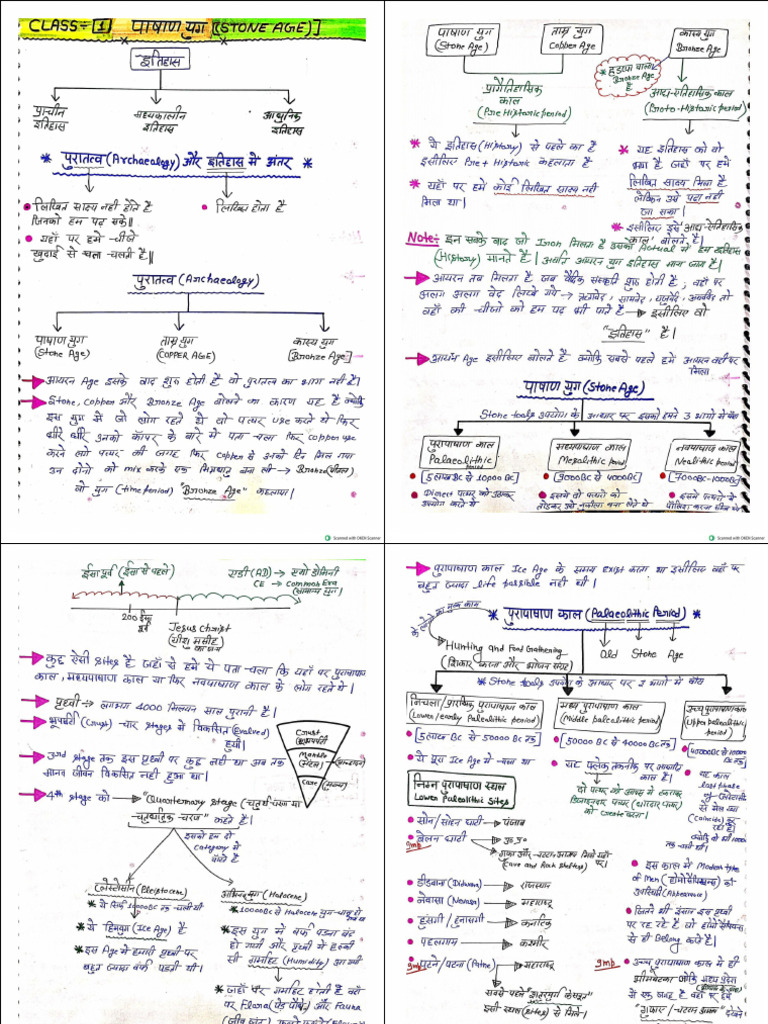 CLASS - 1 पाषाण युग [(STONE AGE)]
इतिहास
प्राचीन इतिहास
मध्यकालीन इतिहास
आधुनिक इतिहास
* पुरातत्व (Archaeology) और इतिहास में अंतर *
लिखित साक्ष्य नहीं होते है
जिनको हम पढ़ सके॥
यहाँ पर हमे चीजे
खुदाई से पता चलती है॥
लिखित होता है
पुरातत्व (Archaeology)
पाषाण युग
(Stone Age)
ताम्र युग
(COPPER AGE)
कास्य युग
[Bronze Age]
आयरन Age इसके बाद शुरू होती है वो पुरातत्व का भाग नहीं है।
Stone, Copper और Bronze Age बोलने का कारण यह है क्योंकि
इस युग में जो लोग रहते हो वो पत्थर use करते थे फिर
धीरे धीरे उनको कॉपर के बारे में पता चला फिर copper use
करने लगे पत्थर की जगह फिर copper से उनको टिन मिल गया
उन दोनो को mix करके एक मिश्रधातु बन ली Bronze (कांसा)
वो युग (time period) "Bronze Age" कहलाया।
पाषाण युग
(Stone Age)
ताम्र युग
Copper Age
कास्य युग
Bronze Age
* हड़प्पा वाला
Bronze Age
है
प्रागैतिहासिक
काल
(Pre Historic period)
आद्य-ऐतिहासिक काल
(Proto-Historic period)
* ये इतिहास (History) से पहले का है
इसीलिए Pre + Historic कहलाता है
* यहाँ पर हमे कोई लिखित साक्ष्य नहीं
मिला था।
* यह इतिहास को वो
भाग है जहाँ पर हमे
लिखित साक्ष्य मिला है
लेकिन उसे पढ़ा नहीं
जा सका।
* इसीलिए इसे 'आद्य-ऐतिहासिक
काल' बोलते है।
Note:- इन सबके बाद जो Iron मिलता है उसको Actual में हम इतिहास
(History) मानते है। अर्थात आयरन युग इतिहास माना जाता है।
आयरन तब मिलता है जब वैदिक संस्कृति शुरू होती है; वहाँ पर
अलग अलग वेद लिखे गये → ऋग्वेद, सामवेद, यजुर्वेद, अथर्ववेद तो
वहाँ की चीजो को हम पढ़ भी पाते है इसीलिए वो
"इतिहास" है।
आयरन Age इसीलिए बोलते है क्योंकि सबसे पहले हमे आयरन वहीं पर
मिला
पाषाण युग (Stone Age)
Stone tools उपयोग के आधार पर इसको हमने 3 भागों में बांटा
पुरापाषाण काल
Palaeolithic period
मध्यपाषाण काल
Mesolithic period
नवपाषाण काल
Neolithic period
[5 लाख BC से 10000 BC]
[9000 BC से 4000 BC]
[7000 BC - 1000 BC]
Direct पत्थर को उठाकर
उपयोग करते थे
इसमे तो पत्थरो को
तोड़कर उसे नुकीला बना लेते थे
इसमे पत्थरो को
Scanned with OKEN Scanner
Scanned with OKEN Scanner
ईसा पूर्व (ईसा से पहले)
एडी (AD) → एनो डोमिनी
CE → Common Era
(सामान्य युग)
200 ईसा पूर्व
Jesus Christ
(यीशु मसीह)
का जन्म
कुछ ऐसी sites है जहाँ से हमे ये पता चला कि यहाँ पर पुरापाषाण
काल, मध्यपाषाण काल या फिर नवपाषाण काल के लोग रहते थे।
पृथ्वी → लगभग 4000 मिलियन साल पुरानी है।
भूपर्पटी (Crust) चार stages में विकसित (Evolved)
हुयी।
3rd stage तक इस पृथ्वी पर कुछ नहीं था अब तक
मानव जीवन विकसित नहीं हुआ था।
Crust
(भूपर्पटी)
Mantle
(मेंटल)
Core
4th stage को "Quaternary Stage (चतुर्थ चरण या
चतुर्थातिक चरण" कहते है।
इसको हम दो
category में
बाँटते है
प्लेस्टोसीन (Pleistocene)
अभिनव युग (Holocene)
* ये सिर्फ 10000 BC तक चली थी
* ये हिमयुग (Ice Age) है।
* इस Age में हमारी पृथ्वी पर
बहुत ज्यादा बर्फ पड़ती थी।
* 10000 BC से Holocene युग चालू हो गया था
* इस युग में बर्फ पड़ना बंद
हो गयी और पृथ्वी में हल्की
सी गर्माहट (Humidity) आ गयी
जहाँ पर गर्माहट होती है वहाँ
पर Flora (पेड़ पौधे) और Fauna
(जीव जंतु)
पुरापाषाण काल Ice Age के समय exist करता था इसीलिए वहाँ पर
बहुत ज्यादा life possible नहीं थी।
* पुरापाषाण काल (Palaeolithic Period) *
के लोगो का मुख्य काम
Hunting and Food Gathering
(शिकार करना और भोजन संग्रह)
Old Stone Age
* Stone tools उपयोग के आधार पर 3 भागो में बाँटा
निचला/प्रारंभिक पुरापाषाण काल
(Lower/early Palaeolithic period)
मध्य पुरापाषाण काल
(Middle palaeolithic period)
उच्च पुरापाषाण काल
(Upper palaeolithic period)
[5 लाख BC से 50000 BC तक]
[50000 BC से 40000 BC तक]
[40000 BC से 10000 BC तक]
ये पूरा Ice Age में चला था
यह फ्लेक तकनीक पर आधारित
काल है।
निम्न पुरापाषाण स्थल
Lower Paleolithic Sites
सोन/सोहन घाटी → पंजाब
बेलन घाटी → यू.पी.
imp
(Cave and Rock Shelters)
डीडवाना (Didwana) → राजस्थान
नेवासा (Nevasa) → महाराष्ट्र
हुंसगी/हुनासगी → कर्नाटक
पहलगाम → कश्मीर
imp पटने/पटना (Patne) → महाराष्ट्र
सबसे पहले "शुतुरमुर्ग के अंडे"
इसी स्थल (Sites) से मिले।
यह काल
last phase
of प्लेस्टोसीन
से मेल खाता
इस काल में Modern types
of Men (होमोसेपियंस) की
उपस्थिति (Appearance)
जितने भी इंसान इस पृथ्वी
पर रह रहे है वो होमोसेपियंस
से ही Belong करते है।
imp
उच्च पुरापाषाण काल में ही
भीमबेटका जोकि मध्य प्रदेश